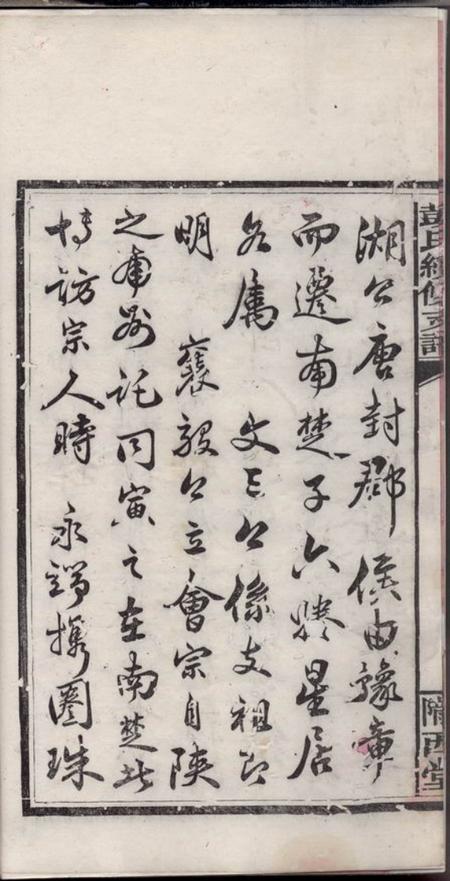 彭氏續修支譜
隴西堂
湖公唐封郡侯由豫章
而遷南楚子六星居
各属　文三公係支祖即
明　襄毅公立會宗自陝
之甫託同寅之在南楚北
博訪宗人時　永端攜圈珠